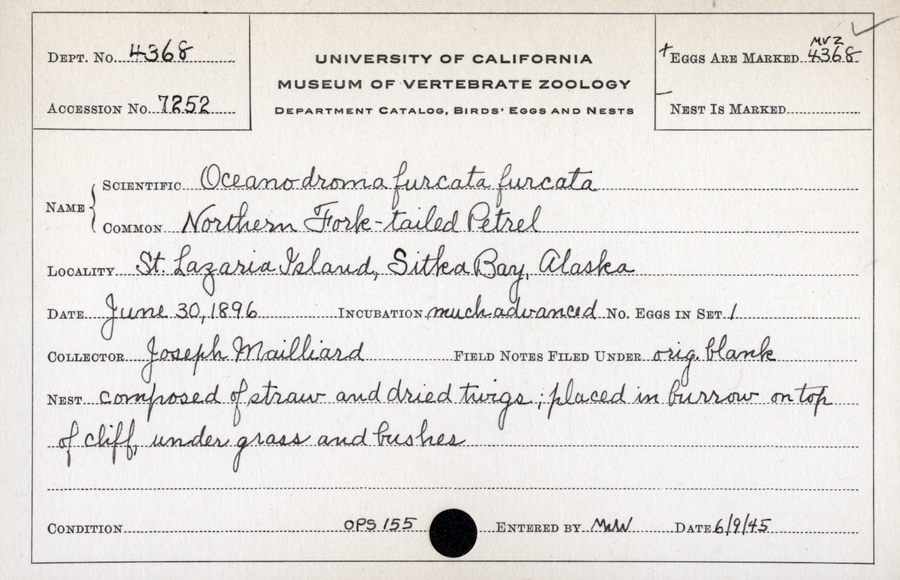 Dept. No. 4368
Accession No. 7252
UNIVERSITY OF CALIFORNIA
MUSEUM OF VERTEBRATE ZOOLOGY
Department Catalog, Birds' Eggs and Nests
MVZ
+ Eggs Are Marked 4368
– Nest Is Marked
Name
Scientific Oceanodroma furcata furcata
Common Northern Fork-tailed Petrel
Locality St. Lazaria Island, Sitka Bay, Alaska
Date June 30, 1896 Incubation much advanced No. Eggs in Set 1
Collector Joseph Mailliard Field Notes Filed Under orig. blank
Nest composed of straw and dried twigs; placed in burrow on top
of cliff, under grass and bushes
Condition OPS 155 Entered by MWW Date 6/9/45